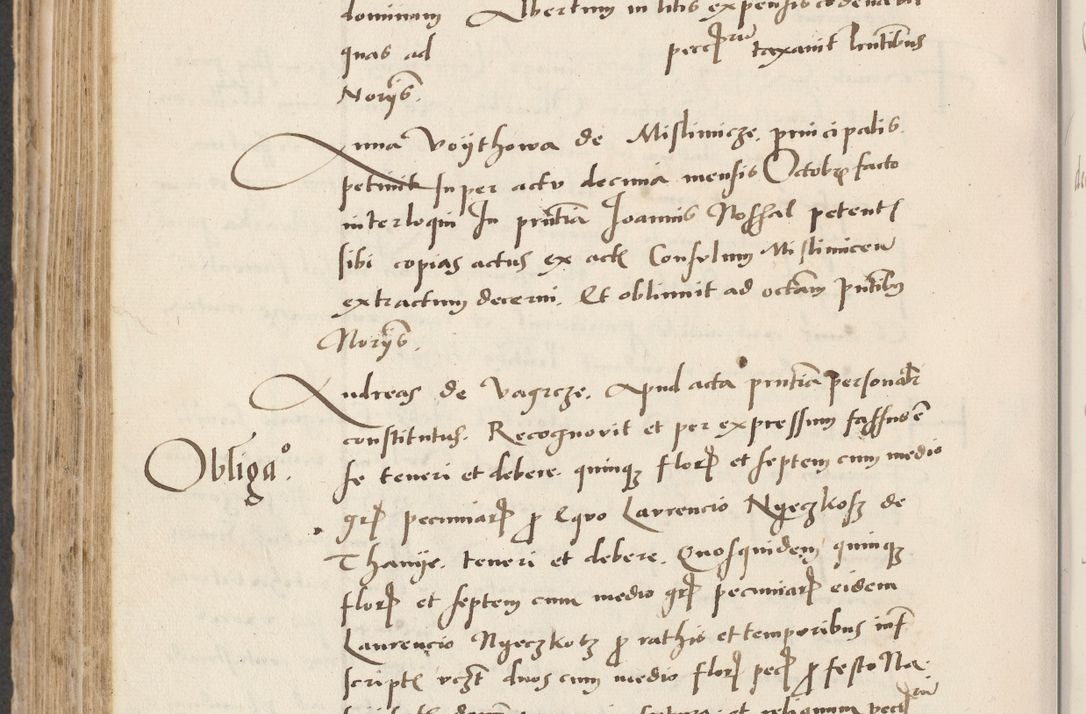 dominum Albertum in litis expensis condemnavit
quas ad percepturum taxavit brutibus
Noryß.
Anna Voythowa de Mislimicze. principalis.
petivit Inper actu decima mensis Octobr facto
interloqui In pruntia Ioannis Nossal petente
sibi copias actus ex actis Consulum Mislimicen
extractum decerni. Et obtinuit ad octam pntibus
Noryß.
Andreas de Vagrcze. Apud acta pruntia personalr
constitutus. Recognovit et per expressum fassus e
Obliga°.
se teneri et debere. quinque flor et septem cum medio
gr pecuniar p Equo Lavrencio Ngeczkosz de
Thanije. teneri et debere. Quosquidem quinque
flor et septem cum medio gr pecuniar eidem
Lavrencio Ngeczkotz p rathis et temporibus inf
script vczt duos cum medio flor pec p festo Na